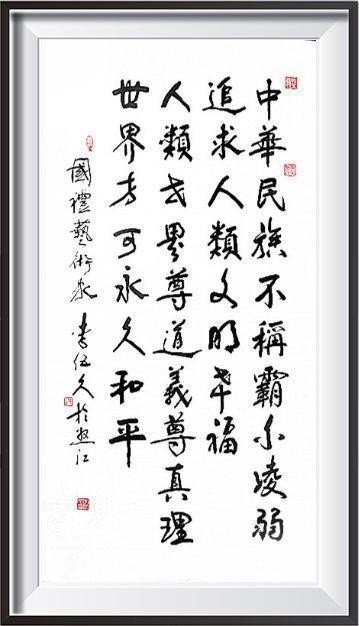 中華民族不稱霸不凌弱
追求人類文明幸福
人類世界尊道義尊真理
世界方可永久和平
國禮藝術家 李伍久於怒江